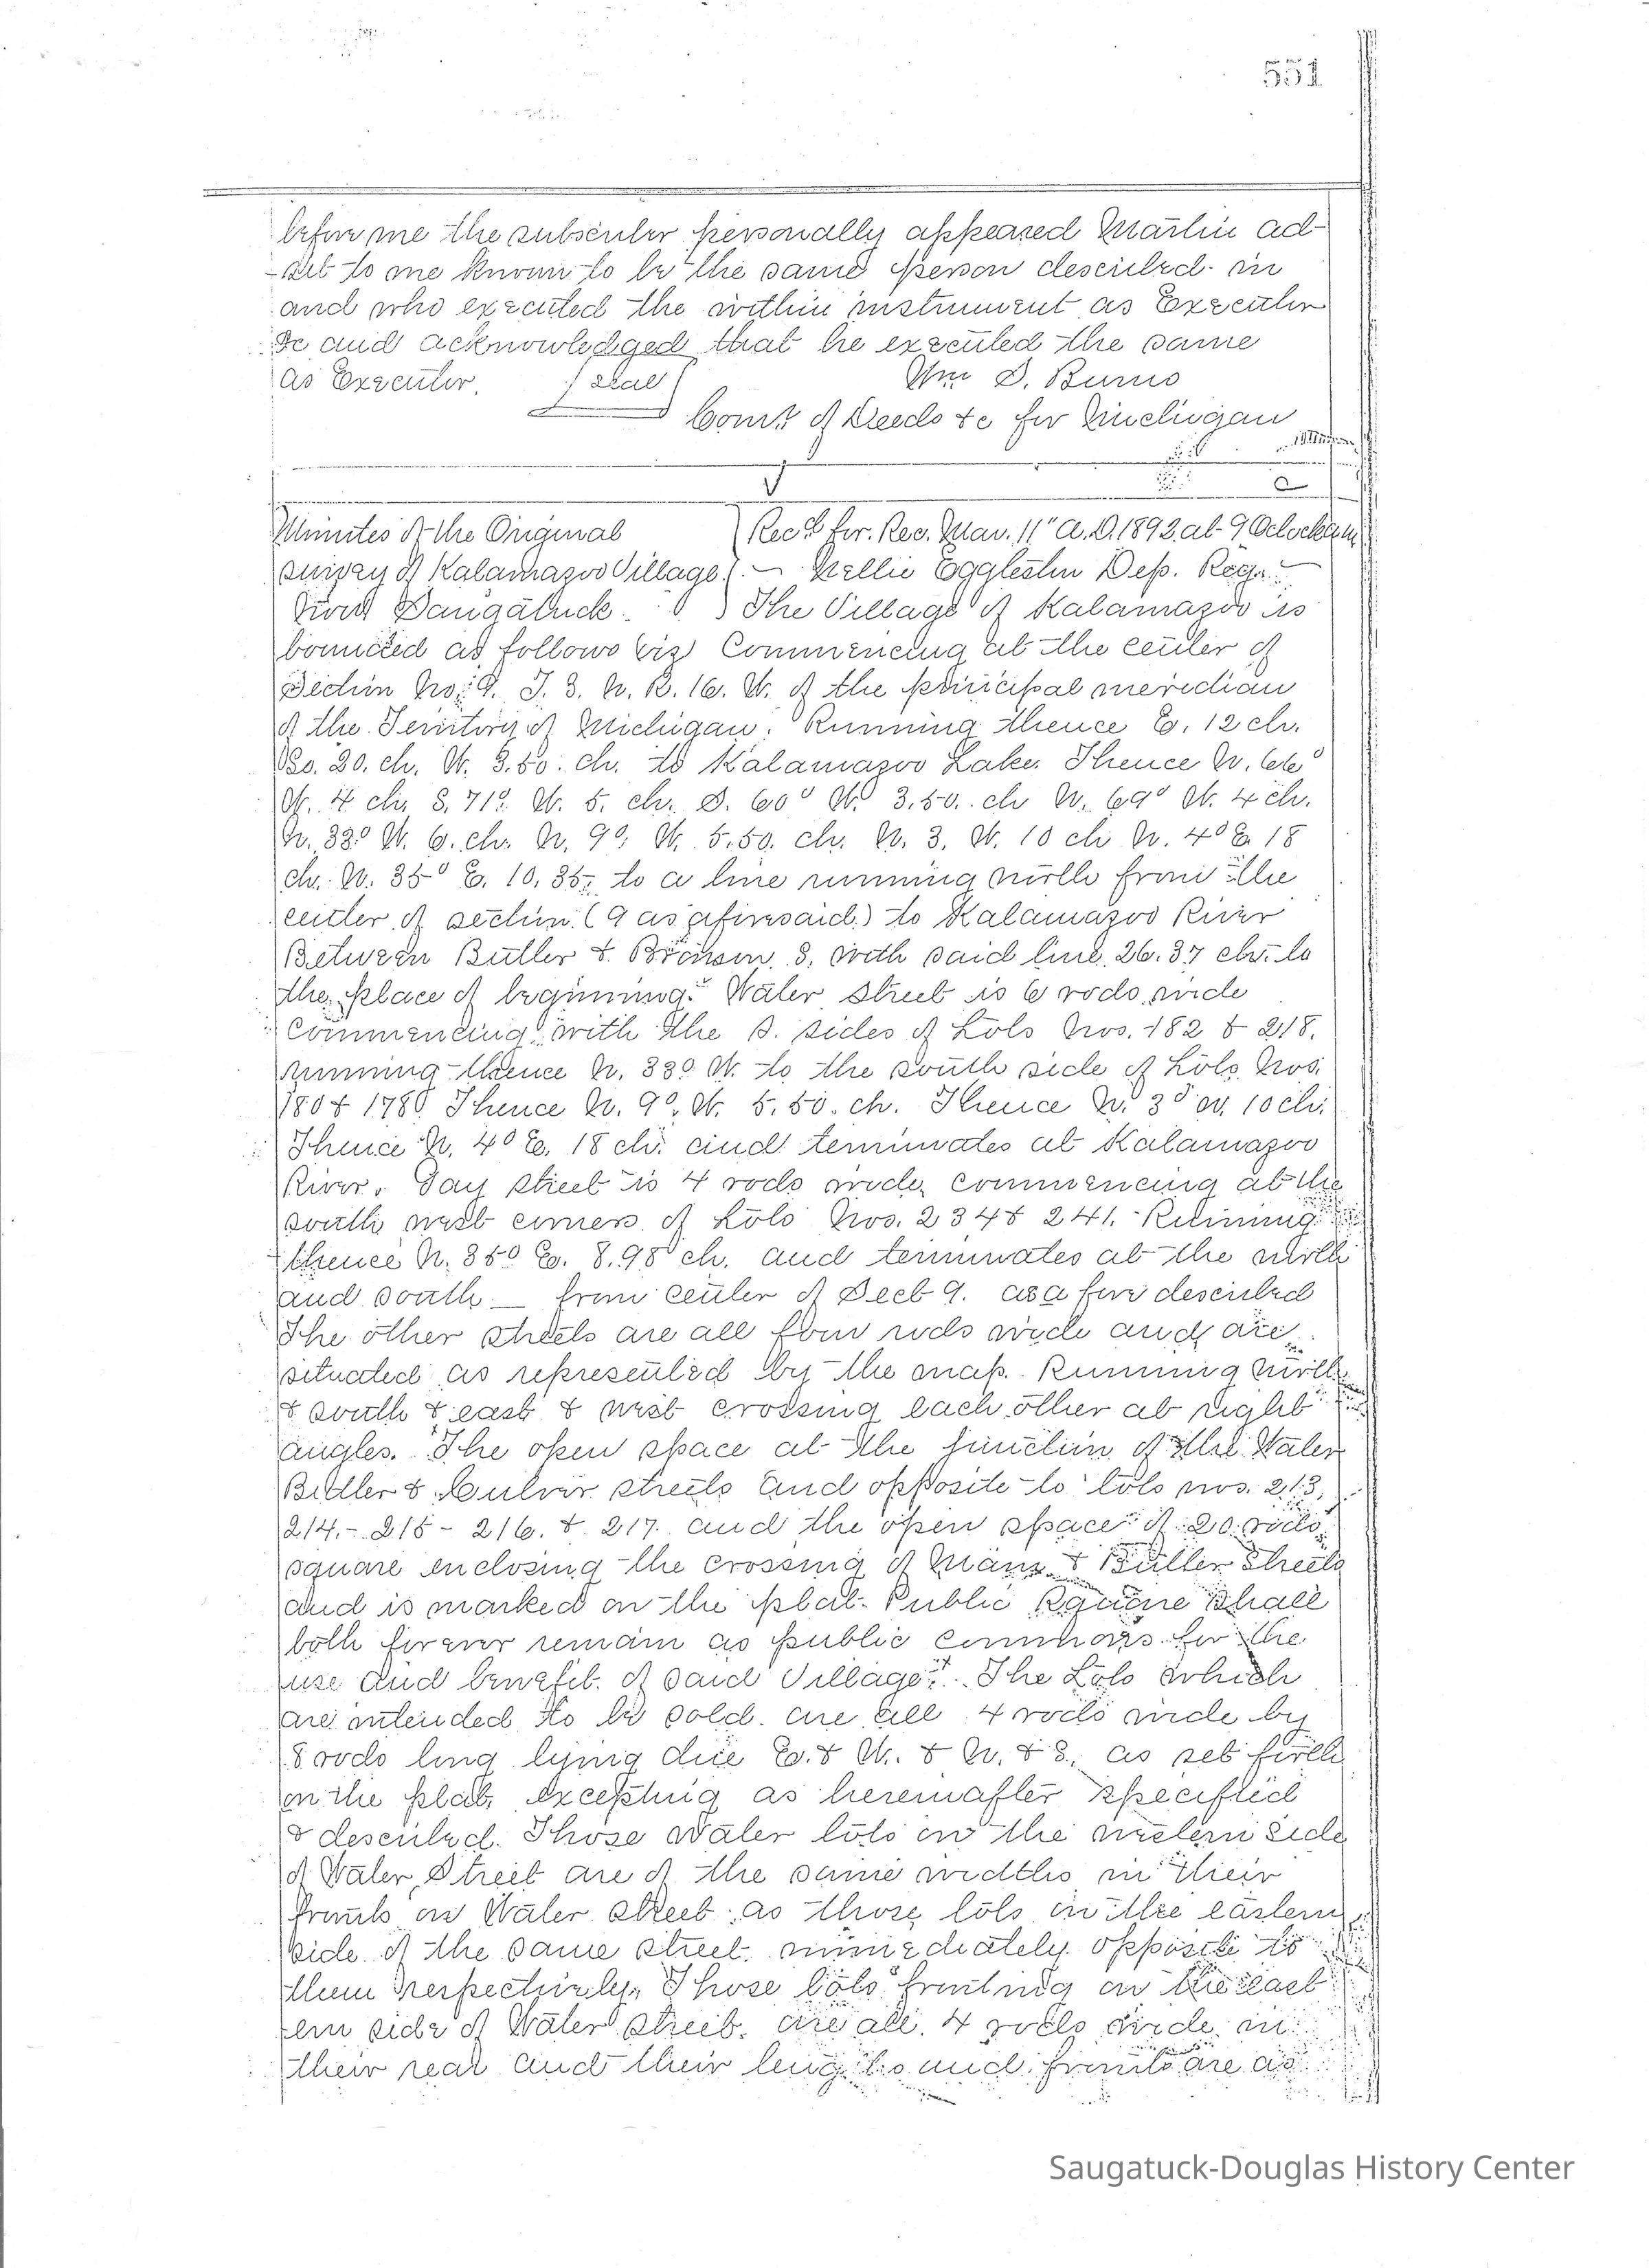 551
before me the subscriber personally appeared Martin ad-
-sit to me known to be the same person described in
and who executed the within instrument as Executor
&c and acknowledged that he executed the same
as Executor. (seal) Wm D. Burns
Comr of Deeds &c for Michigan
Minutes of the Original ) Recd for. Rec. Mar. 11" A.D. 1893 at 9 Oclock am
survey of Kalamazoo Village ) Nellie Eggleston Dep. Reg.
now Saugatuck. ) The Village of Kalamazoo is
bounded as follows (viz) Commencing at the center of
Section No. 9. T. 3. N. R. 16. W. of the principal meridian
of the Territory of Michigan. Running thence E. 12 ch.
So. 20. ch. W. 3.50. ch. to Kalamazoo Lake. Thence N. 66°
W. 4 ch. S. 71° W. 5. ch. S. 60° W. 3.50. ch N. 69° W. 4 ch.
N. 33° W. 6. ch. N. 9° W. 5.50. ch. N. 3. W. 10 ch N. 4° E 18
ch. N. 35° E. 10.35. to a line running north from the
center of section (9 as aforesaid) to Kalamazoo River
Between Butler & Bronson. S. with said line 26.37 ch. to
the place of beginning. Water Street is 6 rods wide
Commencing with the S. sides of Lots Nos. 182 & 218.
running thence N. 33° W. to the south side of Lots Nos.
180 & 178. Thence N. 9° W. 5.50. ch. Thence N. 3° W. 10 ch.
Thence N. 4° E. 18 ch. and terminates at Kalamazoo
River. Gay street is 4 rods wide, commencing at the
south west corners of Lots Nos. 234 & 241. Running
thence N. 35° E. 8.98 ch. and terminates at the north
and south — from center of Sect 9. as afore described
The other streets are all four rods wide and are
situated as represented by the map. Running north
& south & east & west crossing each other at right
angles. The open space at the junction of the Water
Butler & Culver streets and opposite to lots nos. 213,
214.- 215 - 216. & 217. and the open space of 20 rods
square enclosing the crossing of Main & Butler Streets
and is marked on the plat. Public Square Shall
both forever remain as public commons for the
use and benefit. of said Village. The Lots which
are intended to be sold. are all 4 rods wide by
8 rods long lying due E. & W. & N. & S. as set forth
on the plat, excepting as hereinafter specified
& described. Those water lots on the western side
of Water Street are of the same widths in their
fronts on Water street as those lots on the eastern
side of the same street immediately opposite to
them respectively. Those lots fronting on the east
ern side of Water Street. are all. 4 rods wide in
their rear and their lengths and fronts are as
Saugatuck-Douglas History Center